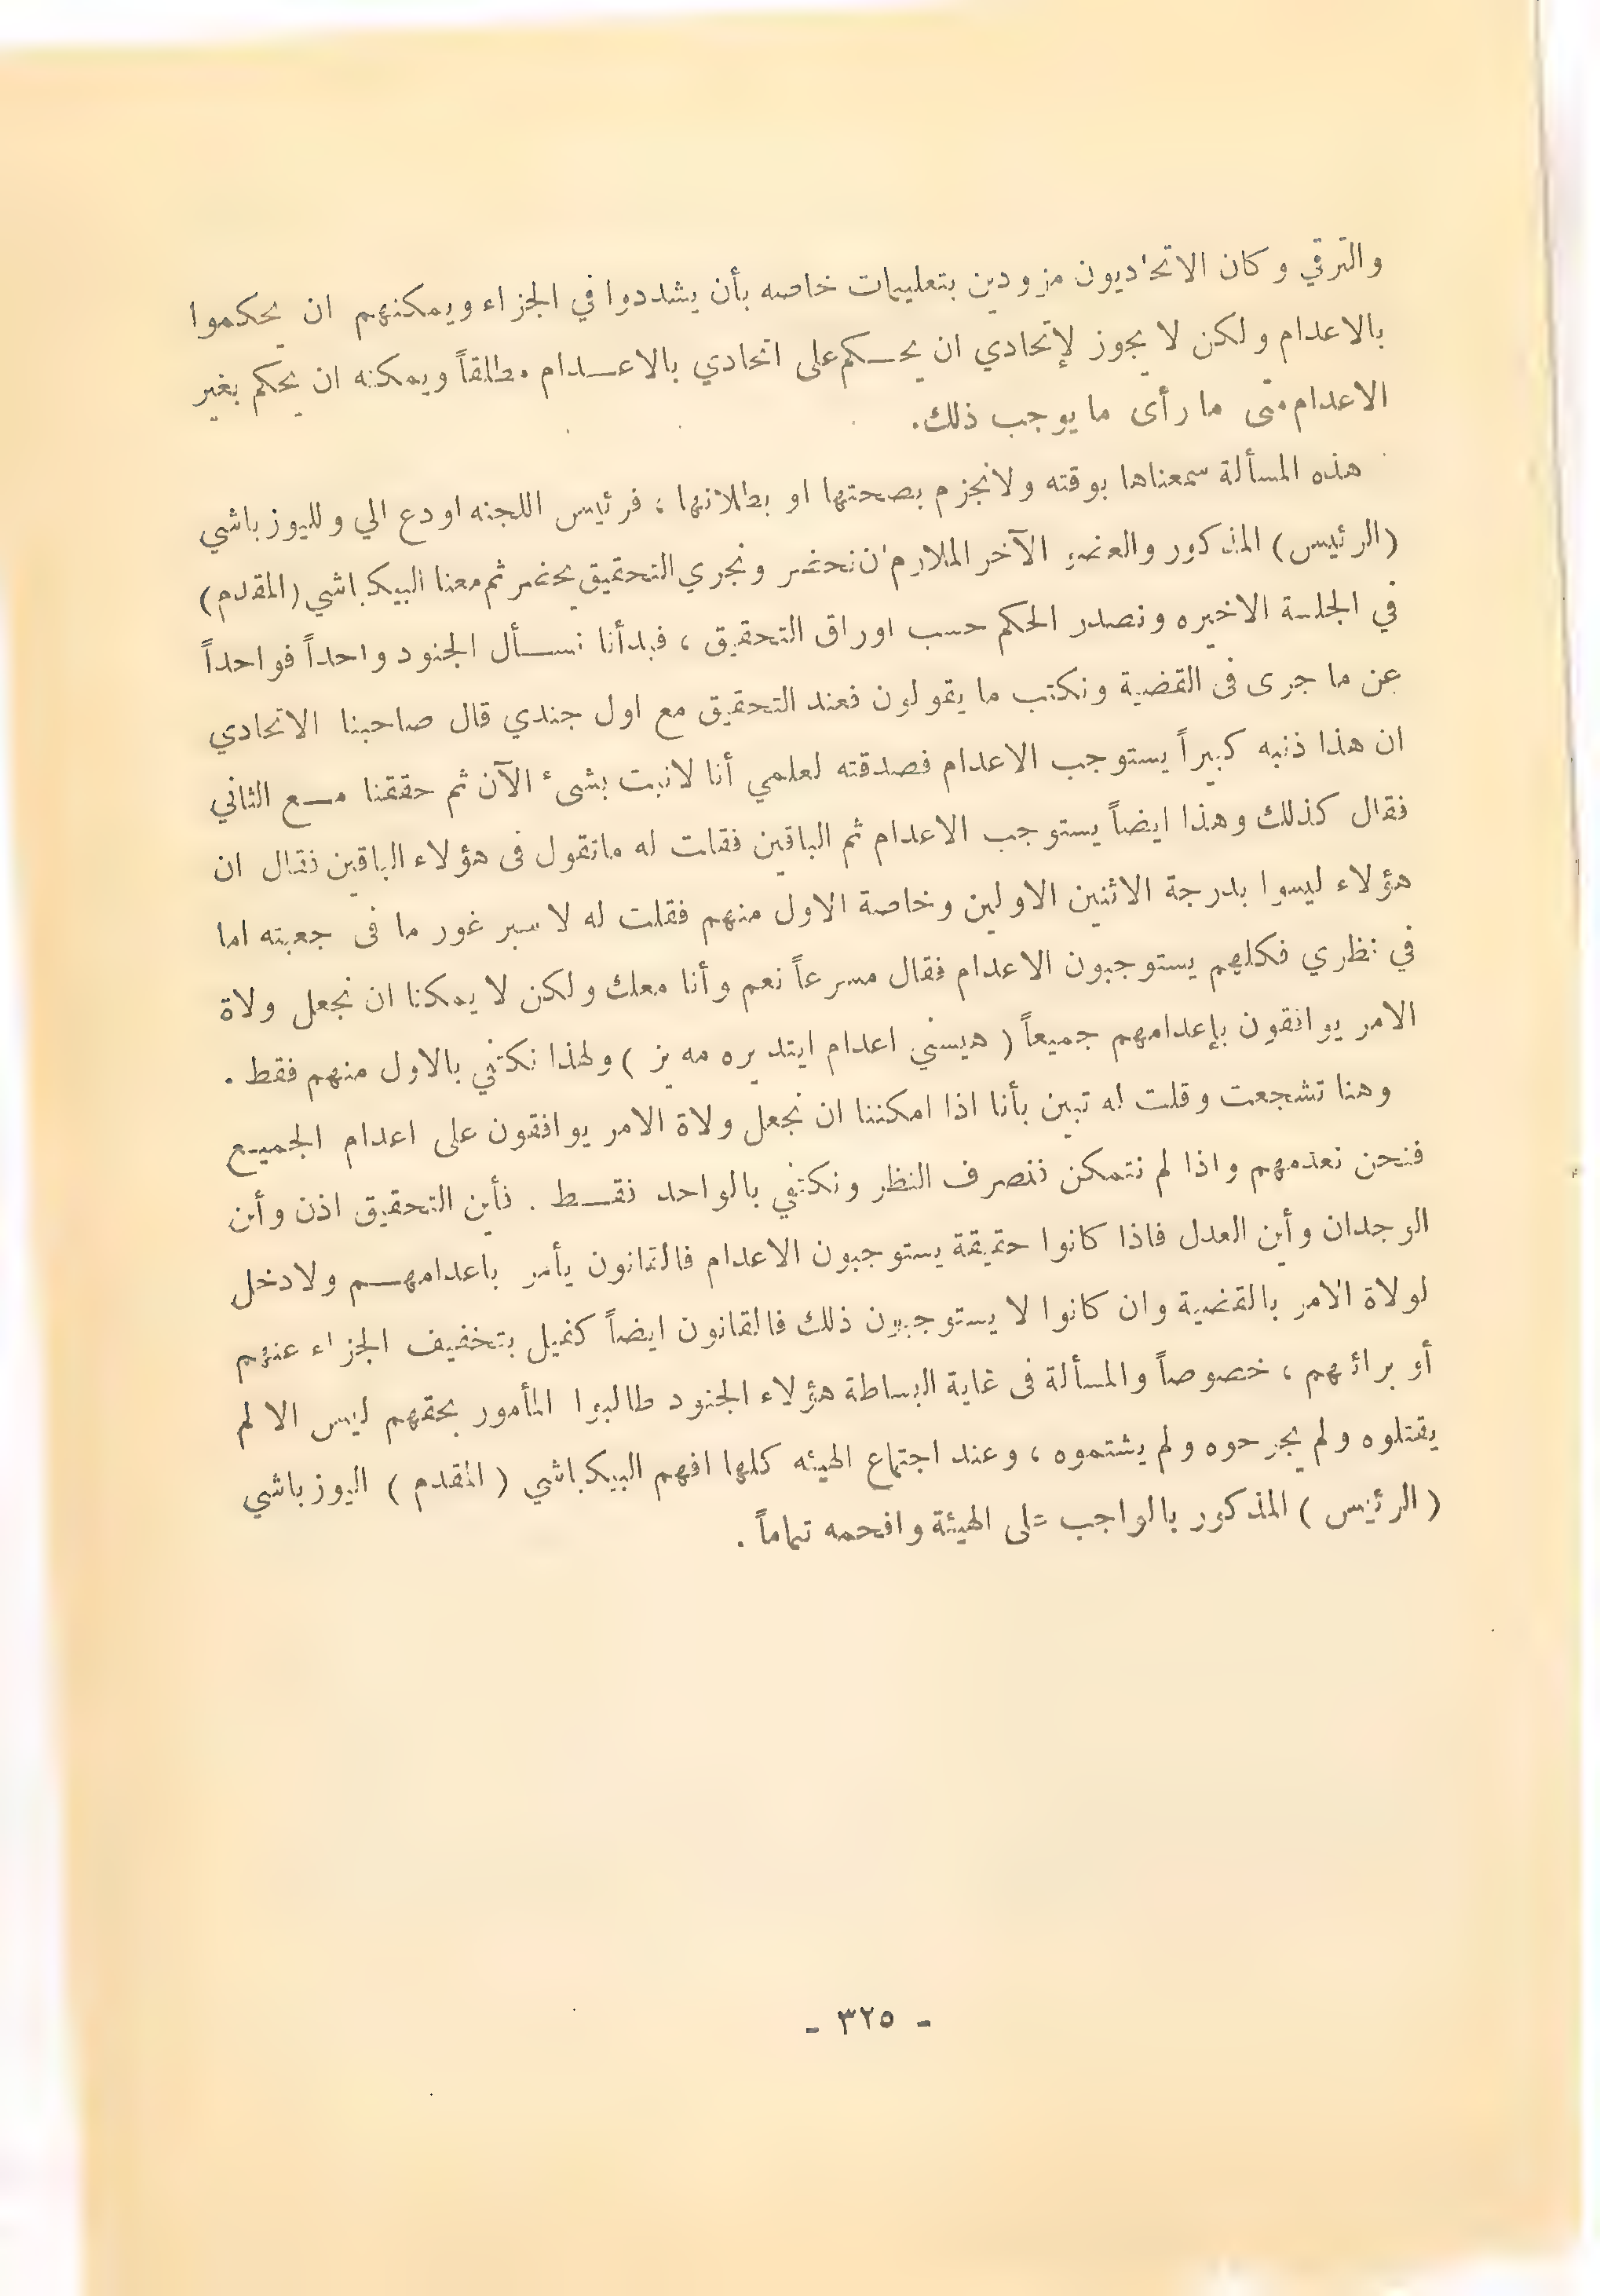 والترقي وكان الاتحاديون مزودين بتعليمات خاصه بأن يشددوا في الجزاء ويمكنهم ان يحكموا
بالاعدام ولكن لا يجوز لإتحادي ان يحكم على اتحادي بالاعدام مطلقاً ويمكنه ان يحكم بغير
الاعدام متى ما رأى ما يوجب ذلك.
هذه المسألة سمعناها بوقته ولانجزم بصحتها او بطلانها ؛ فرئيس اللجنه اودع الي ولليوزباشي
(الرئيس) المذكور والعضو الآخر الملازم ان نحضر ونجري التحقيق بحضر ثم معنا البيكباشي (المقدم)
في الجلسة الاخيره ونصدر الحكم حسب اوراق التحقيق ، فبدأنا نسأل الجنود واحداً فواحداً
عن ما جرى فى القضية ونكتب ما يقولون فعند التحقيق مع اول جندي قال صاحبنا الاتحادي
ان هذا ذنبه كبيراً يستوجب الاعدام فصدقته لعلمي أنا لانبت بشىء الآن ثم حققنا مع الثاني
فقال كذلك وهذا ايضاً يستوجب الاعدام ثم الباقين فقلت له ماتقول فى هؤلاء الباقين فقال ان
هؤلاء ليسوا بدرجة الاثنين الاولين وخاصة الاول منهم فقلت له لا سبر غور ما فى جعبته اما
في نظري فكلهم يستوجبون الاعدام فقال مسرعاً نعم وأنا معك ولكن لا يمكنا ان نجعل ولاة
الامر يوافقون بإعدامهم جميعاً ( هيسني اعدام ايتديره مه يز ) ولهذا نكتفي بالاول منهم فقط .
وهنا تشجعت وقلت له تبين بأنا اذا امكننا ان نجعل ولاة الامر يوافقون على اعدام الجميع
فنحن نعدمهم واذا لم نتمكن فنصرف النظر ونكتفي بالواحد فقط . فأين التحقيق اذن وأين
الوجدان وأين العدل فاذا كانوا حقيقة يستوجبون الاعدام فالقانون يأمر باعدامهم ولادخل
لولاة الامر بالقضية وان كانوا لا يستوجبون ذلك فالقانون ايضاً كفيل بتخفيف الجزاء عنهم
أو برائهم ، خصوصاً والمسألة فى غاية البساطة هؤلاء الجنود طالبوا المأمور بحقهم ليس الا لم
يقتلوه ولم يجرحوه ولم يشتموه ، وعند اجتماع الهيئه كلها افهم البيكباشي ( المقدم ) اليوزباشي
( الرئيس ) المذكور بالواجب على الهيئة وافحمه تماماً .
- ٣٢٥ -